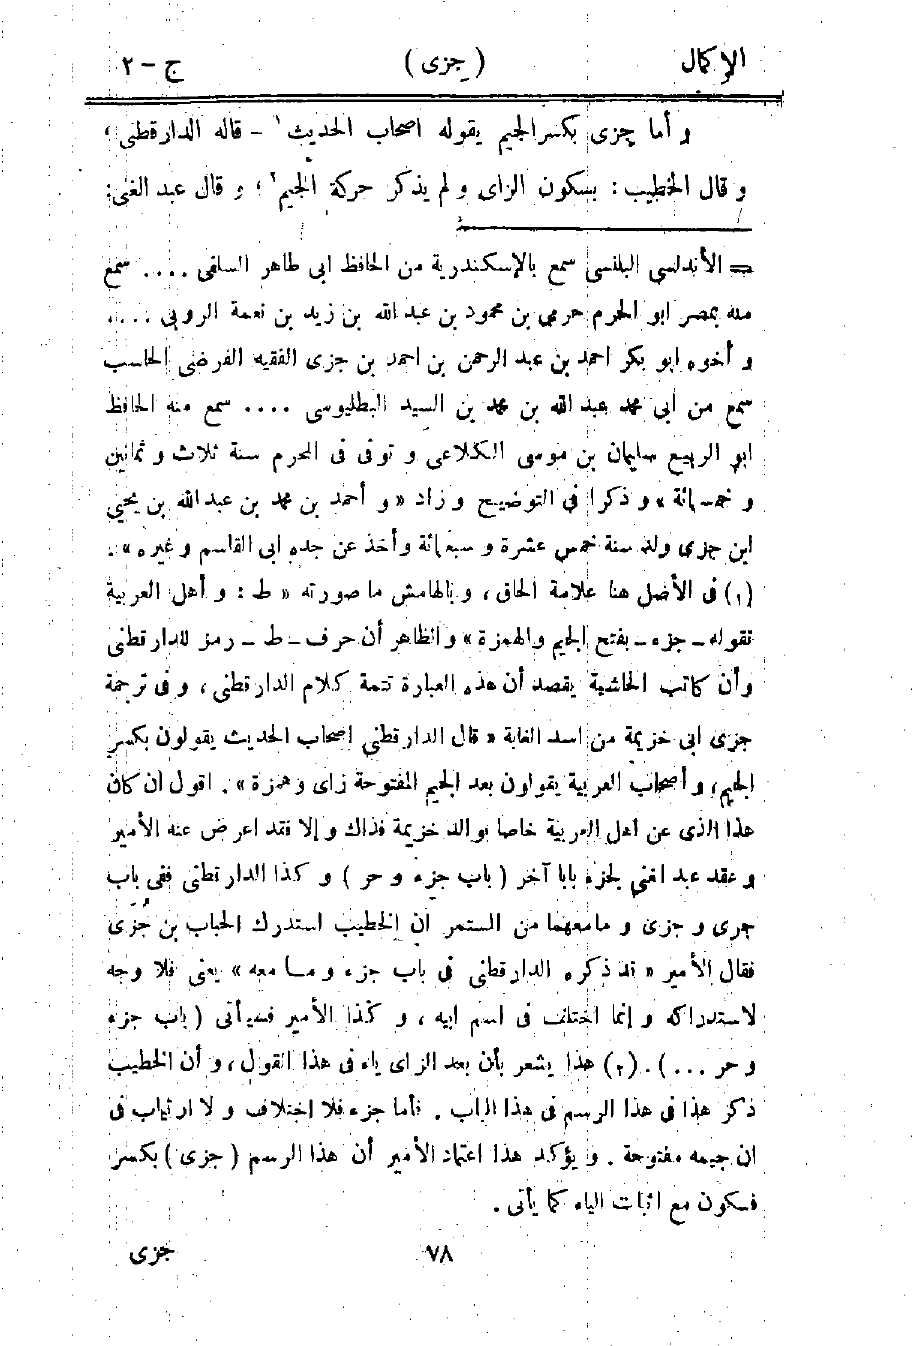 الإكمال ( جزى ) ج – ٢
و أما جزى بكسر الجيم يقوله اصحاب الحديث ١ – قاله الدارقطنى ؛
و قال الخطيب : بسكون الزاى و لم يذكر حركة الجيم ٢ ؛ و قال عبد الغنى :
= الأندلسى البلنسى سمع بالإسكندرية من الحافظ ابى طاهر السلفى .... سمع
منه بمصر ابو الحرم حرمى بن محمود بن عبد الله بن زيد بن نعمة الروبى ....
و أخوه ابو بكر احمد بن عبد الرحمن بن احمد بن جزى الفقيه الفرضى الحاسب
سمع من أبى محمد عبد الله بن محمد بن السيد البطليوسى .... سمع منه الحافظ
ابو الربيع سليمان بن موسى الكلاعى و توفى فى المحرم سنة ثلاث و ثمانين
و خمسمائة » و ذكرا فى التوضيح و زاد « و أحمد بن محمد بن عبد الله بن يحيى
ابن جزى ولد سنة خمس عشرة و سبعمائة وأخذ عن جده ابى القاسم و غيره » .
(١) فى الأصل هنا علامة الحاق ، و بالهامش ما صورته « ط : و أهل العربية
تقوله – جزء – بفتح الجيم والهمزة » و الظاهر أن حرف – ط – رمز للدارقطنى
وأن كاتب الحاشية يقصد أن هذه العبارة تتمة كلام الدارقطنى ، و فى ترجمة
جزى ابى خزيمة من اسد الغابة « قال الدارقطنى اصحاب الحديث يقولون بكسر
الجيم ، و أصحاب العربية يقولون بعد الجيم المفتوحة زاى و همزة » . اقول ان كان
هذا الذى عن اهل العربية خاصا بوالد خزيمة فذاك و إلا فقد اعرض عنه الأمير
و عقد عبد الغنى لجزء بابا آخر ( باب جزء و حر ) و كذا الدارقطنى ففى باب
جرى و جزى و ما معهما من المستمر ان الخطيب استدرك الحباب بن جُزَى
فقال الأمير « قد ذكره الدارقطنى فى باب جزء و ما معه » يعنى فلا وجه
لاستدراكه و إنما اختلف فى اسم ابيه ، و كذا الأمير فسيأتى ( باب جزء
و حر ... ) . (٢) هذا يشعر بأن بعد الزاى ياء فى هذا القول ، و أن الخطيب
ذكر هذا فى هذا الرسم فى هذا الباب . فأما جزء فلا اختلاف و لا ارتياب فى
ان جيمه مفتوحة . و يؤكد هذا اعتماد الأمير أن هذا الرسم ( جزى ) بكسر
فسكون مع اثبات الياء كما يأتى .
٧٨ جزى